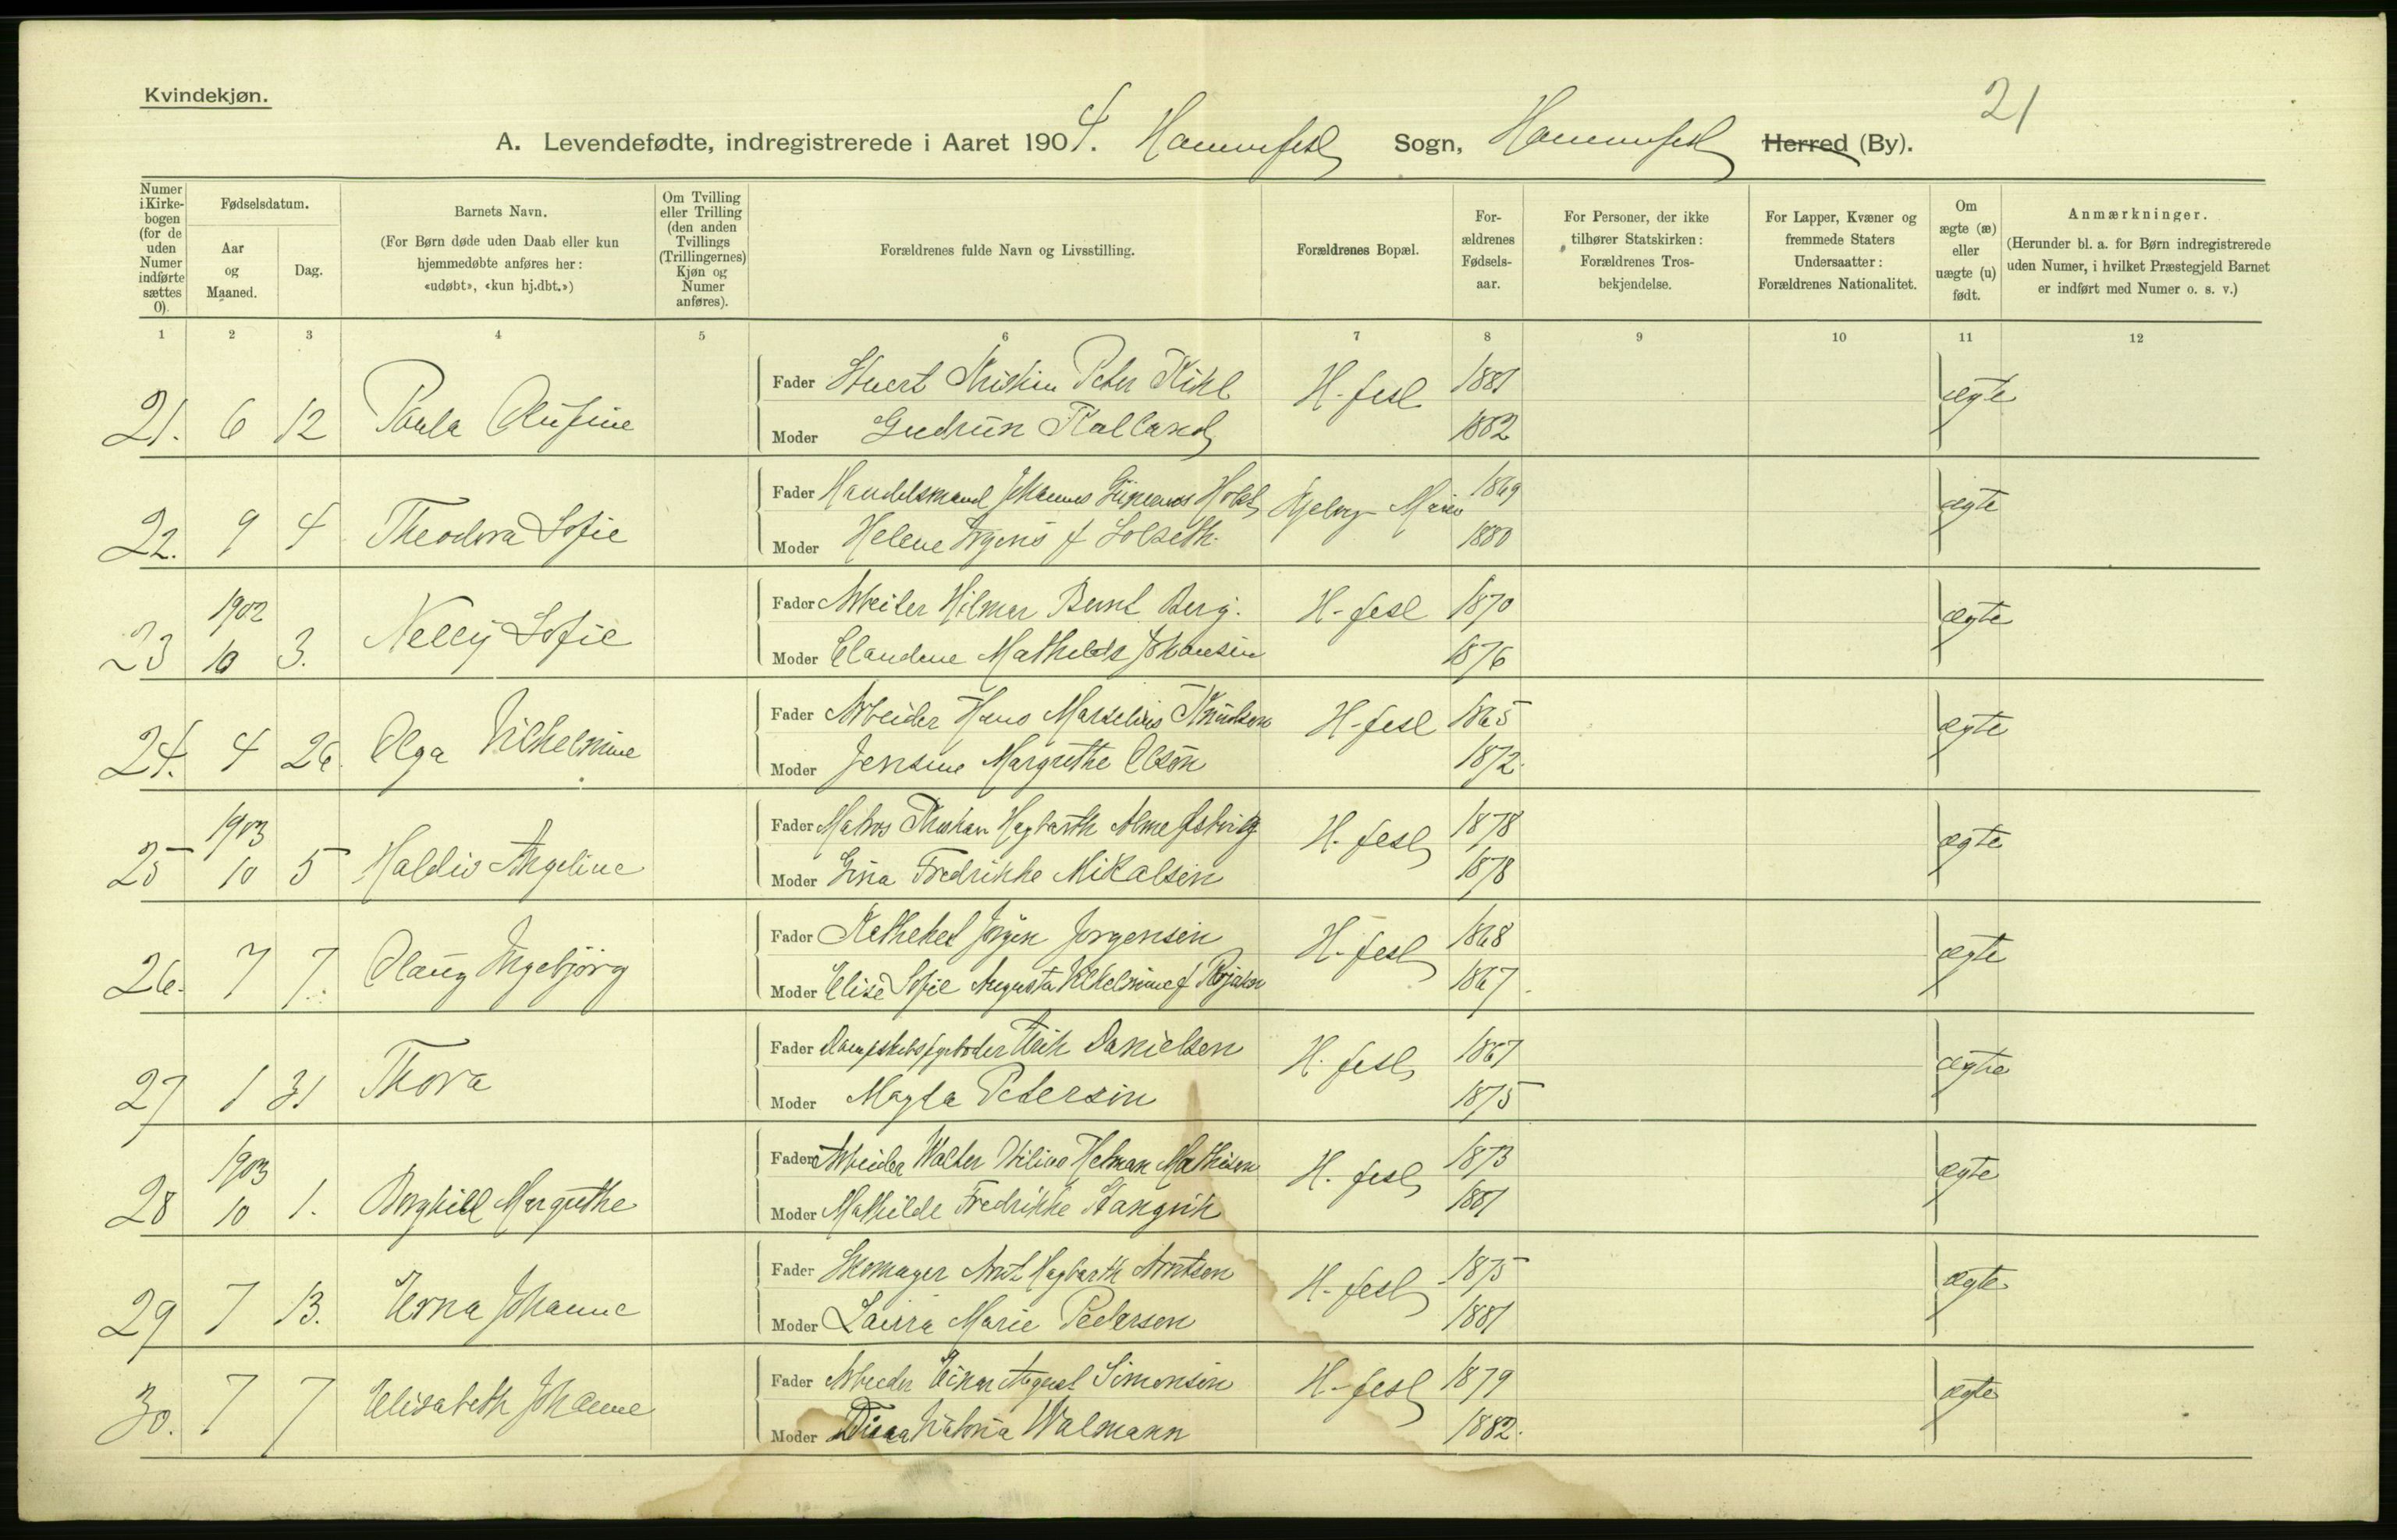 Kvindekjøn.
21
A. Levendefødte, indregistrerede i Aaret 1904. Hammerfest Sogn, Hammerfest Herred (By).
Numer i Kirke-bogen (for de uden Numer indførte sættes 0).
Fødselsdatum.
Aar og Maaned.
Dag.
Barnets Navn.
(For Børn døde uden Daab eller kun hjemmedøbte anføres her: «udøbt», «kun hj.dbt.»)
Om Tvilling eller Trilling (den anden Tvillings (Trillingernes) Kjøn og Numer anføres).
Forældrenes fulde Navn og Livsstilling.
Forældrenes Bopæl.
For-ældrenes Fødsels-aar.
For Personer, der ikke tilhører Statskirken: Forældrenes Tros-bekjendelse.
For Lapper, Kvæner og fremmede Staters Undersaatter: Forældrenes Nationalitet.
Om ægte (æ) eller uægte (u) født.
Anmærkninger.
(Herunder bl. a. for Børn indregistrerede uden Numer, i hvilket Præstegjeld Barnet er indført med Numer o. s. v.)
1 2 3 4 5 6 7 8 9 10 11 12
Fader Peter Kihl H-fest 1881 ægte
21. 6 12 Paula Olufine
Moder Gudrun 1882
Fader Handelsmand Johannes Holst 1869 ægte
22. 9 4 Theodora Sofie
Moder Helene f Solseth 1880
1902
Fader Arbeider Hilmar Bernt Berg. H-fest 1870 ægte
23 10 3. Nelly Sofie
Moder Claudine Mathilde Johansen 1876
Fader Arbeider Hans Marselius Knudsen H-fest 1865 ægte
24. 4 26. Olga Vilhelmine
Moder Jensine Margrethe Olsen 1872.
1903
Fader Matros Hagbarth H-fest 1878 ægte
25 10 5 Angeline
Moder Gina Fredrikke Mikalsen 1878
Fader Jørgen Jørgensen H-fest 1868 ægte
26. 7 7. Olaug Ingebjørg
Moder Elise Sofie Augusta Vilhelmine f 1867.
Fader Danielsen H-fest 1867 ægte
27 1 31 Thora
Moder Magda Pedersen 1875
1903
Fader Arbeider Walter Mathisen H-fest 1873 ægte
28 10 1. Borghild Margrethe
Moder Mathilde Fredrikke Stangvik 1881
Fader Skomager Arnt Hagbarth Arntsen H-fest 1875 ægte
29 7 13. Erna Johanne
Moder Laura Marie Pedersen 1881
Fader Arbeider Einar August Simonsen H-fest 1879 ægte
30. 7 7 Elisabeth Johanne
Moder Walmann 1882.